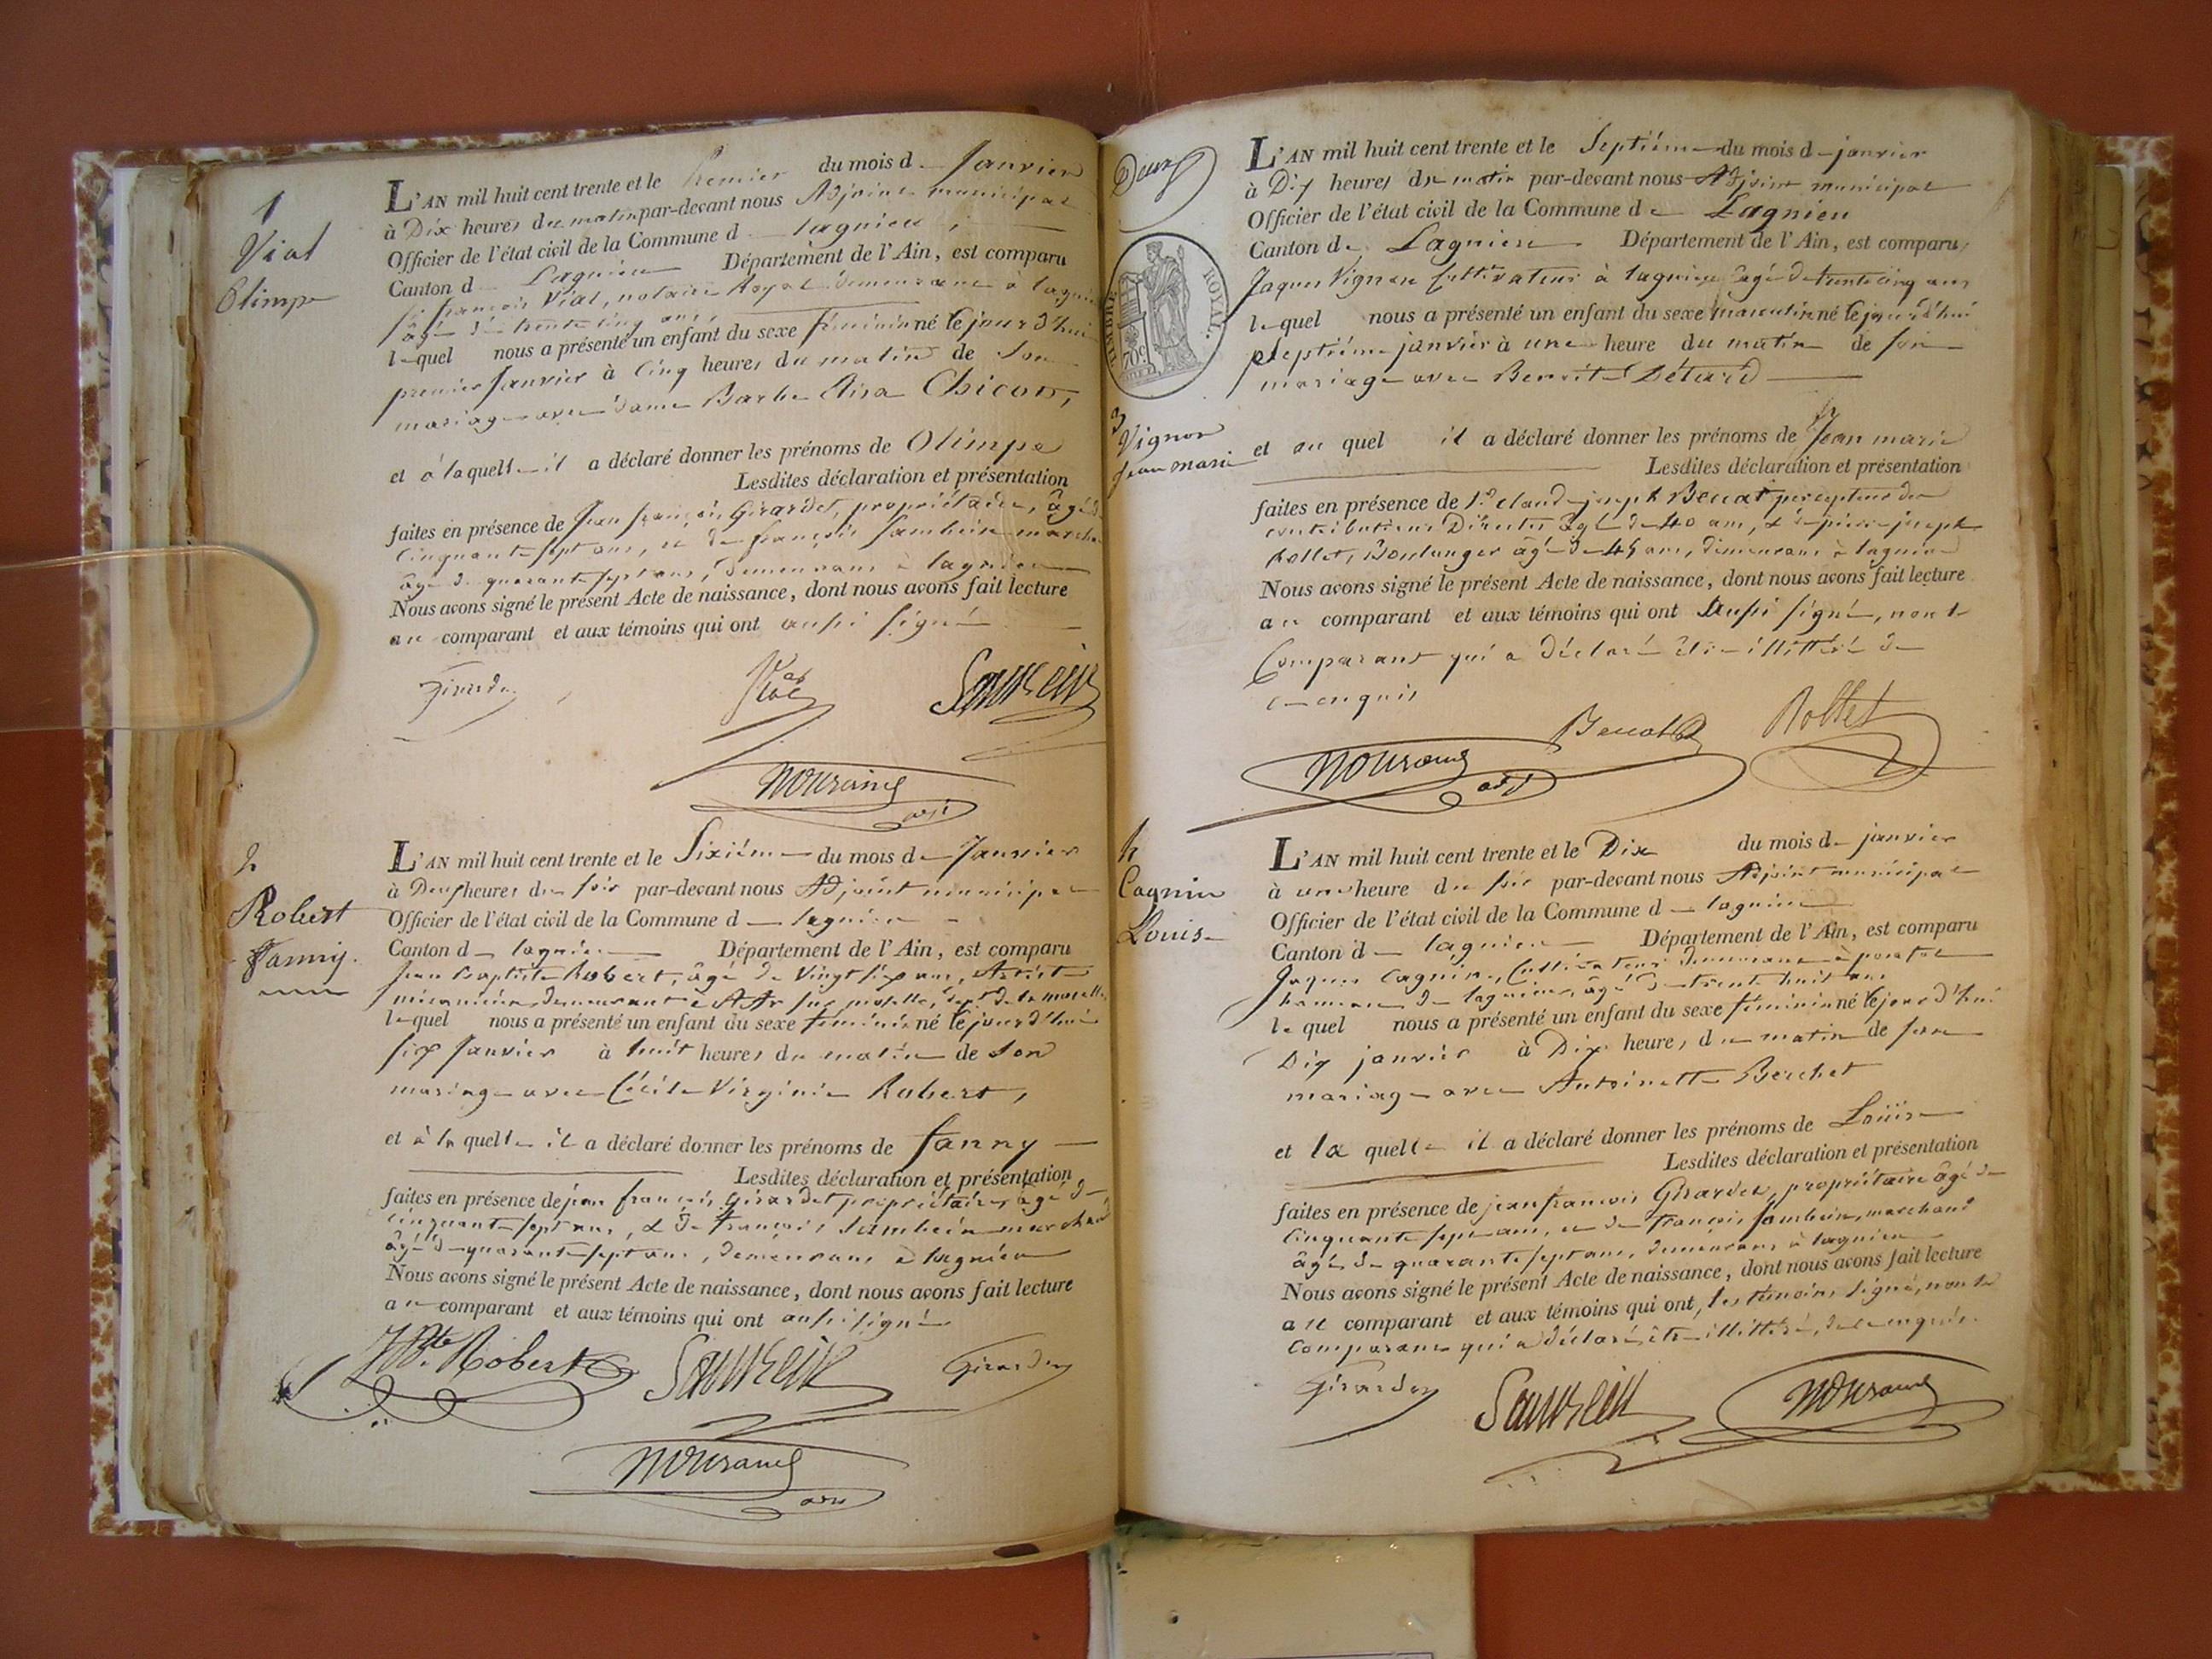 1
Vial
Olimpe
L'AN mil huit cent trente et le Premier du mois de Janvier
à Dix heures du matin par-devant nous Adjoint municipal
Officier de l'état civil de la Commune d lagnieu
Canton d Lagnieu Département de l'Ain, est comparu
françois Vial, notaire Royal demeurant à lagnieu
âgé de trente cinq ans
lequel nous a présenté un enfant du sexe féminin né cejourd'hui
premier Janvier à Cinq heures du matin de Son
mariage avec dame Barbe Elisa Chicot,
et à laquelle il a déclaré donner les prénoms de Olimpe
Lesdites déclaration et présentation
faites en présence de Jean françois Girardet, propriétaire, âgé de
Cinquante sept ans, et de françois Sambein marchand
âgé de quarante sept ans, demeurans à lagnieu
Nous avons signé le présent Acte de naissance, dont nous avons fait lecture
au comparant et aux témoins qui ont aussi signé
2
Robert
Fanny.
L'AN mil huit cent trente et le Sixième du mois de Janvier
à Deux heures du soir par-devant nous Adjoint municipal
Officier de l'état civil de la Commune d lagnieu
Canton d lagnieu Département de l'Ain, est comparu
Jean Baptiste Robert, âgé de Vingt six ans, Artiste
mécanicien demeurant à Ars sur moselle, dépt de la moselle
lequel nous a présenté un enfant du sexe féminin né cejourd'hui
six Janvier à huit heures du matin de Son
mariage avec Cécile Virginie Robert,
et à laquelle il a déclaré donner les prénoms de fanny
Lesdites déclaration et présentation
faites en présence de jean françois Girardet propriétaire, âgé de
cinquante sept ans, & de françois Sambein marchand
âgé de quarante sept ans, demeurans à lagnieu
Nous avons signé le présent Acte de naissance, dont nous avons fait lecture
au comparant et aux témoins qui ont aussi signé
JBte Robert Girardet
Deux
TIMBRE ROYAL.
70c
3
Vignon
Jean marie
L'AN mil huit cent trente et le Septième du mois de janvier
à Dix heures du matin par-devant nous Adjoint municipal
Officier de l'état civil de la Commune de Lagnieu
Canton de Lagnieu Département de l'Ain, est comparu
Jaques Vignon Cultivateur à lagnieu âgé de trente cinq ans
lequel nous a présenté un enfant du sexe masculin né cejourd'hui
septième janvier à une heure du matin de son
mariage avec Benoite Détard
et au quel il a déclaré donner les prénoms de Jean marie
Lesdites déclaration et présentation
faites en présence de Sr claude joseph Beccat percepteur des
contributions Directes âgé de 40 ans, & de pierre joseph
Rollet, Boulanger âgé de 45 ans, demeurans à lagnieu
Nous avons signé le présent Acte de naissance, dont nous avons fait lecture
au comparant et aux témoins qui ont aussi signé, non le
Comparant qui a déclaré être illittéré de
ce enquis
Beccat Rollet
4
Cagnin
Louise
L'AN mil huit cent trente et le Dix du mois de janvier
à une heure du soir par-devant nous Adjoint municipal
Officier de l'état civil de la Commune d lagnieu
Canton d lagnieu Département de l'Ain, est comparu
Jaques Cagnin, Cultivateur demeurant à
hameau de lagnieu, âgé de trente huit ans
lequel nous a présenté un enfant du sexe féminin né cejourd'hui
Dix janvier à Dix heures du matin de son
mariage avec Antoinette Berchet
et la quelle il a déclaré donner les prénoms de Louise
Lesdites déclaration et présentation
faites en présence de jean francois Girardet, propriétaire âgé de
Cinquante sept ans, et de françois Sambein, marchand
âgé de quarante sept ans, demeurans à lagnieu
Nous avons signé le présent Acte de naissance, dont nous avons fait lecture
au comparant et aux témoins qui ont, les témoins signé, non le
Comparant qui a déclaré être illittéré, de ce enquis.
Girardet